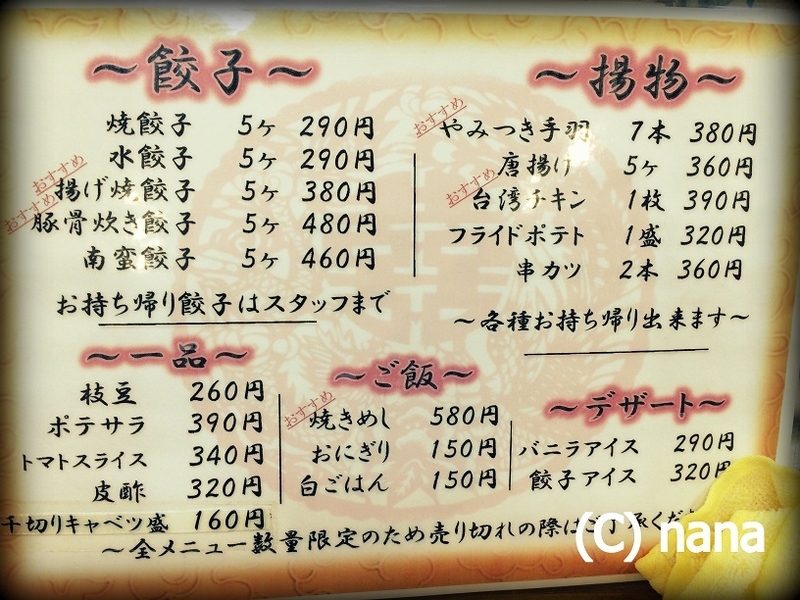 ～餃子～
焼餃子 5ヶ 290円
水餃子 5ヶ 290円
おすすめ 揚げ焼餃子 5ヶ 380円
おすすめ 豚骨炊き餃子 5ヶ 480円
南蛮餃子 5ヶ 460円
お持ち帰り餃子はスタッフまで
～揚物～
おすすめ やみつき手羽 7本 380円
唐揚げ 5ヶ 360円
おすすめ 台湾チキン 1枚 390円
フライドポテト 1盛 320円
串カツ 2本 360円
～各種お持ち帰り出来ます～
～一品～
枝豆 260円
ポテサラ 390円
トマトスライス 340円
皮酢 320円
千切りキャベツ盛 160円
～ご飯～
おすすめ 焼きめし 580円
おにぎり 150円
白ごはん 150円
～デザート～
バニラアイス 290円
餃子アイス 320円
～全メニュー数量限定のため売り切れの際はご了承くだ
(C) nana